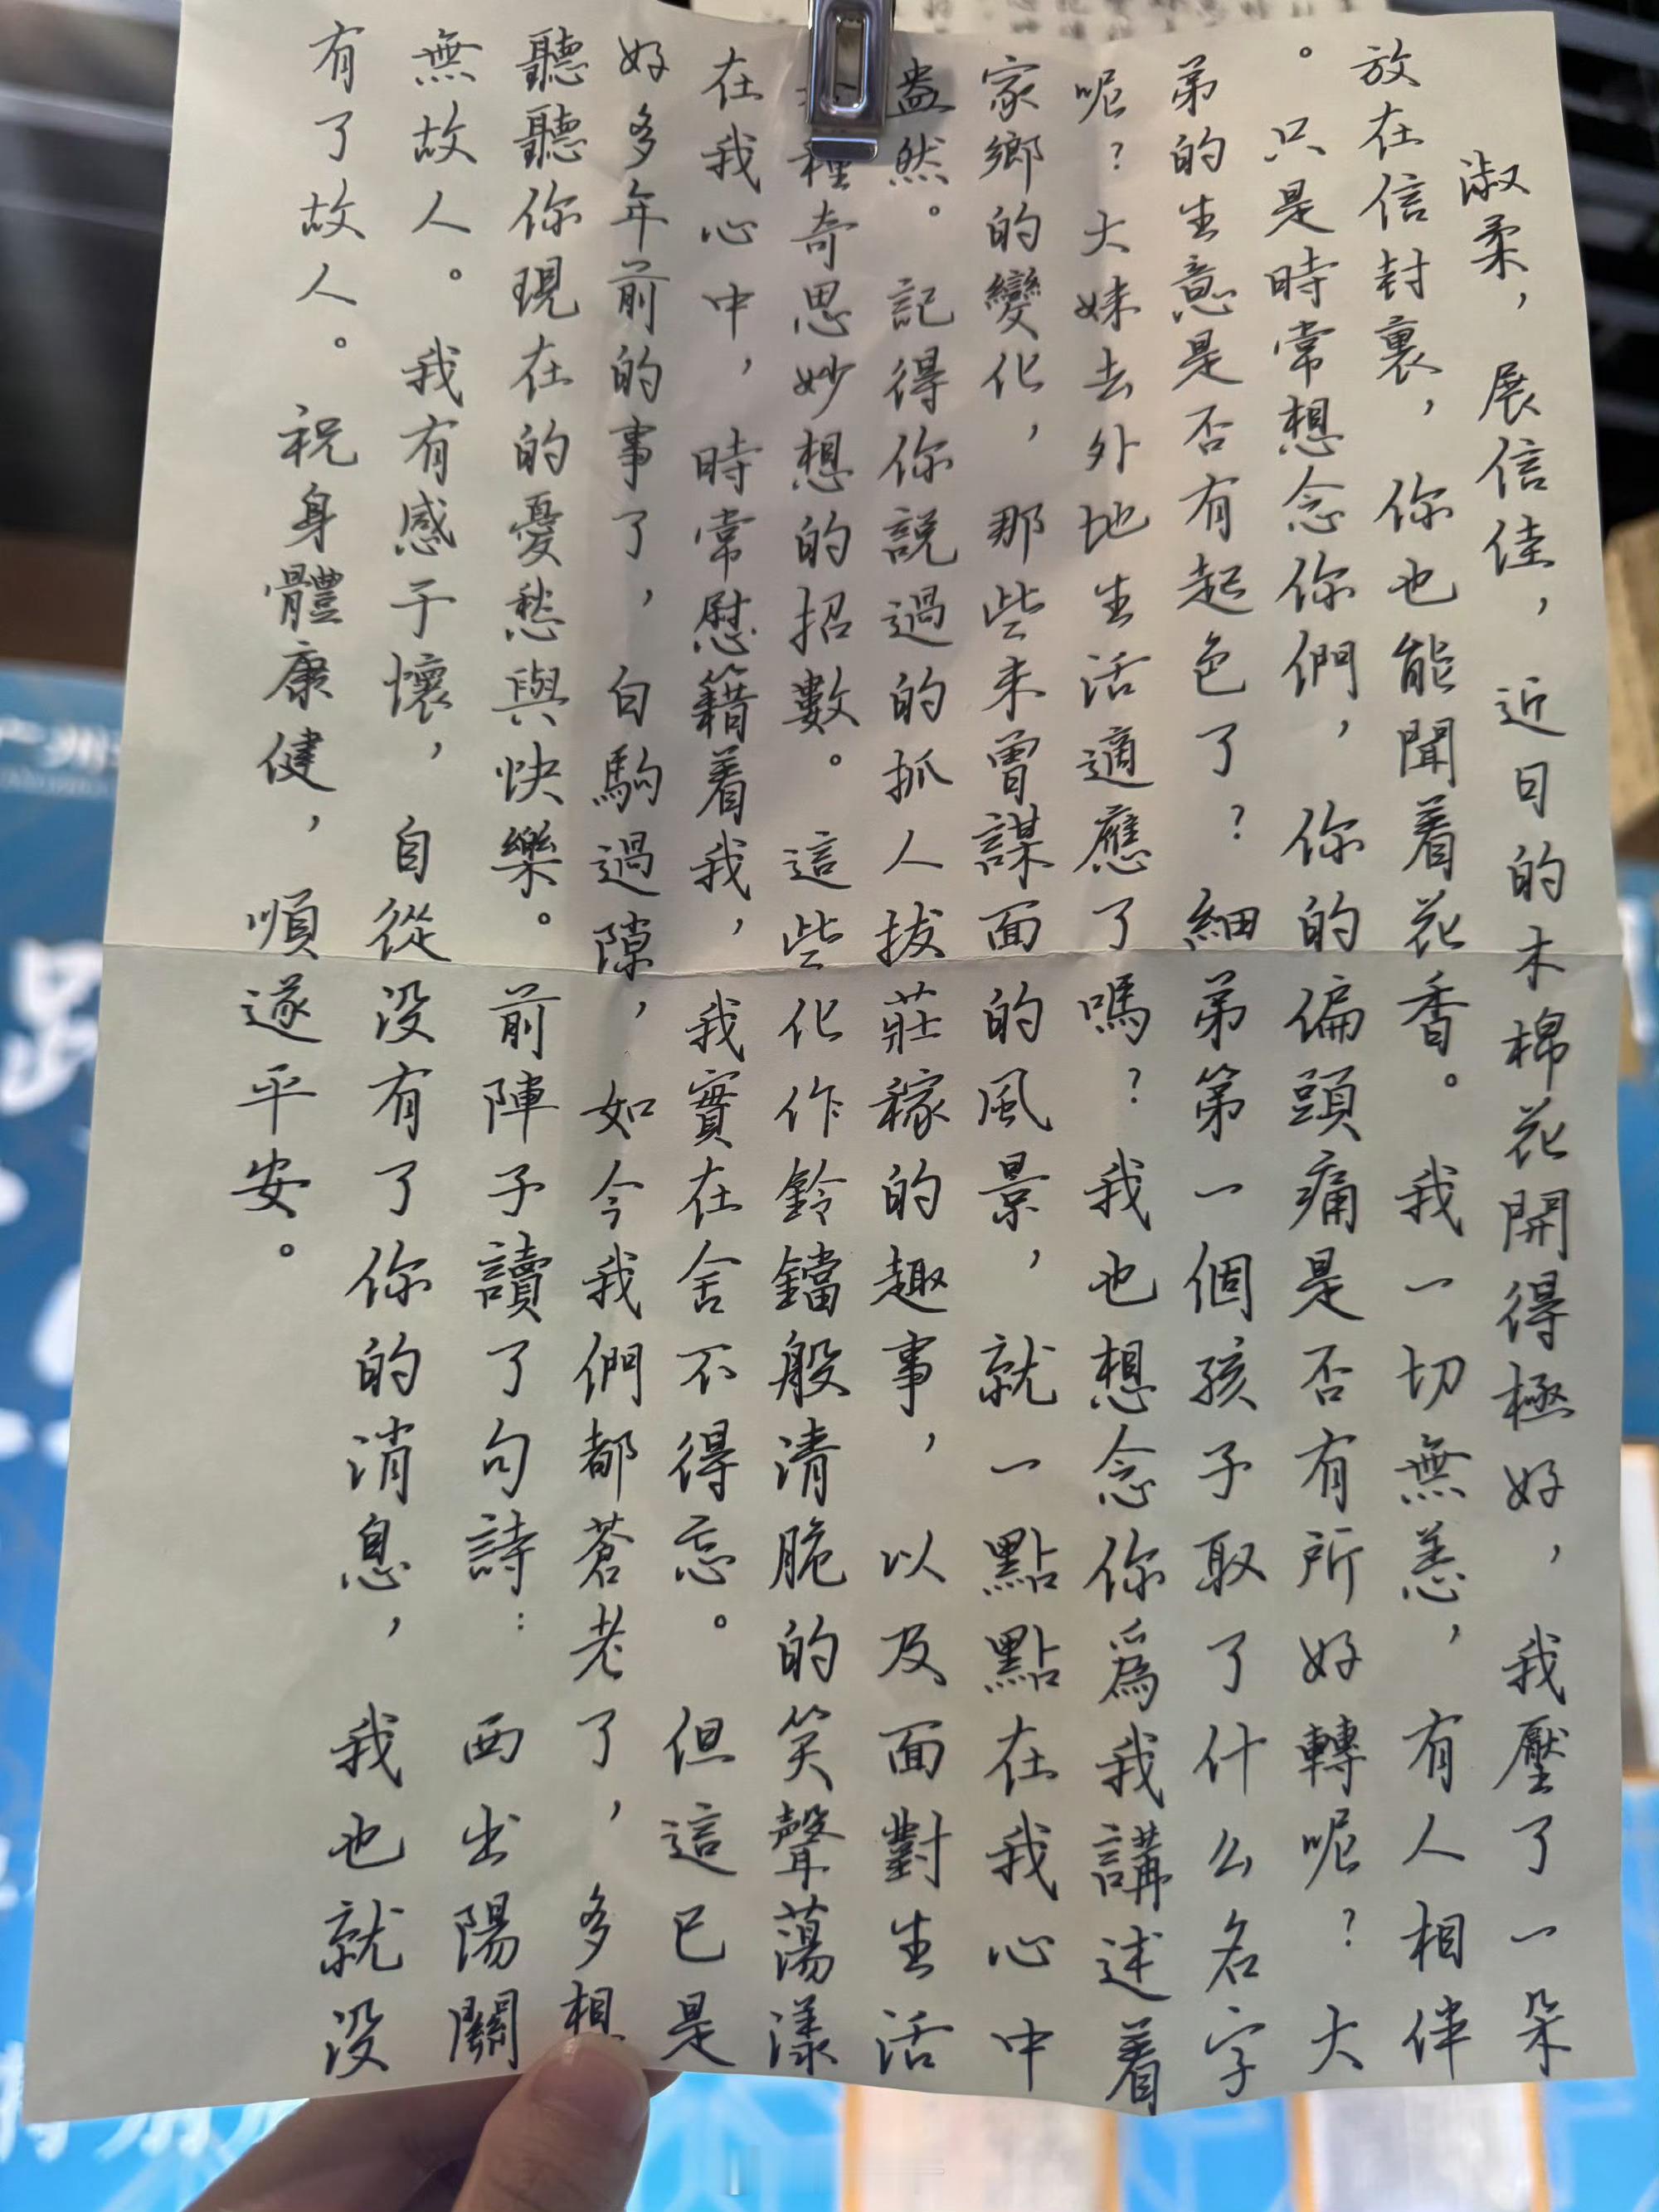 淑柔，展信佳，近日的木棉花開得極好，我壓了一朵
放在信封裏，你也能聞着花香。我一切無恙，有人相伴
。只是時常想念你們，你的偏頭痛是否有所好轉呢？大
弟的生意是否有起色了？細弟第一個孩子取了什么名字
呢？大妹去外地生活適應了嗎？我也想念你爲我講述着
家鄉的變化，那些未曾謀面的風景，就一點點在我心中
盎然。記得你說過的抓人拔莊稼的趣事，以及面對生活
種奇思妙想的招數。這些化作鈴鐺般清脆的笑聲蕩漾
在我心中，時常慰籍着我，我實在舍不得忘。但這已是
好多年前的事了，白駒過隙，如今我們都蒼老了，多想
聽聽你現在的憂愁與快樂。前陣子讀了句詩：西出陽關
無故人。我有感于懷，自從没有了你的消息，我也就没
有了故人。祝身體康健，順遂平安。
广州